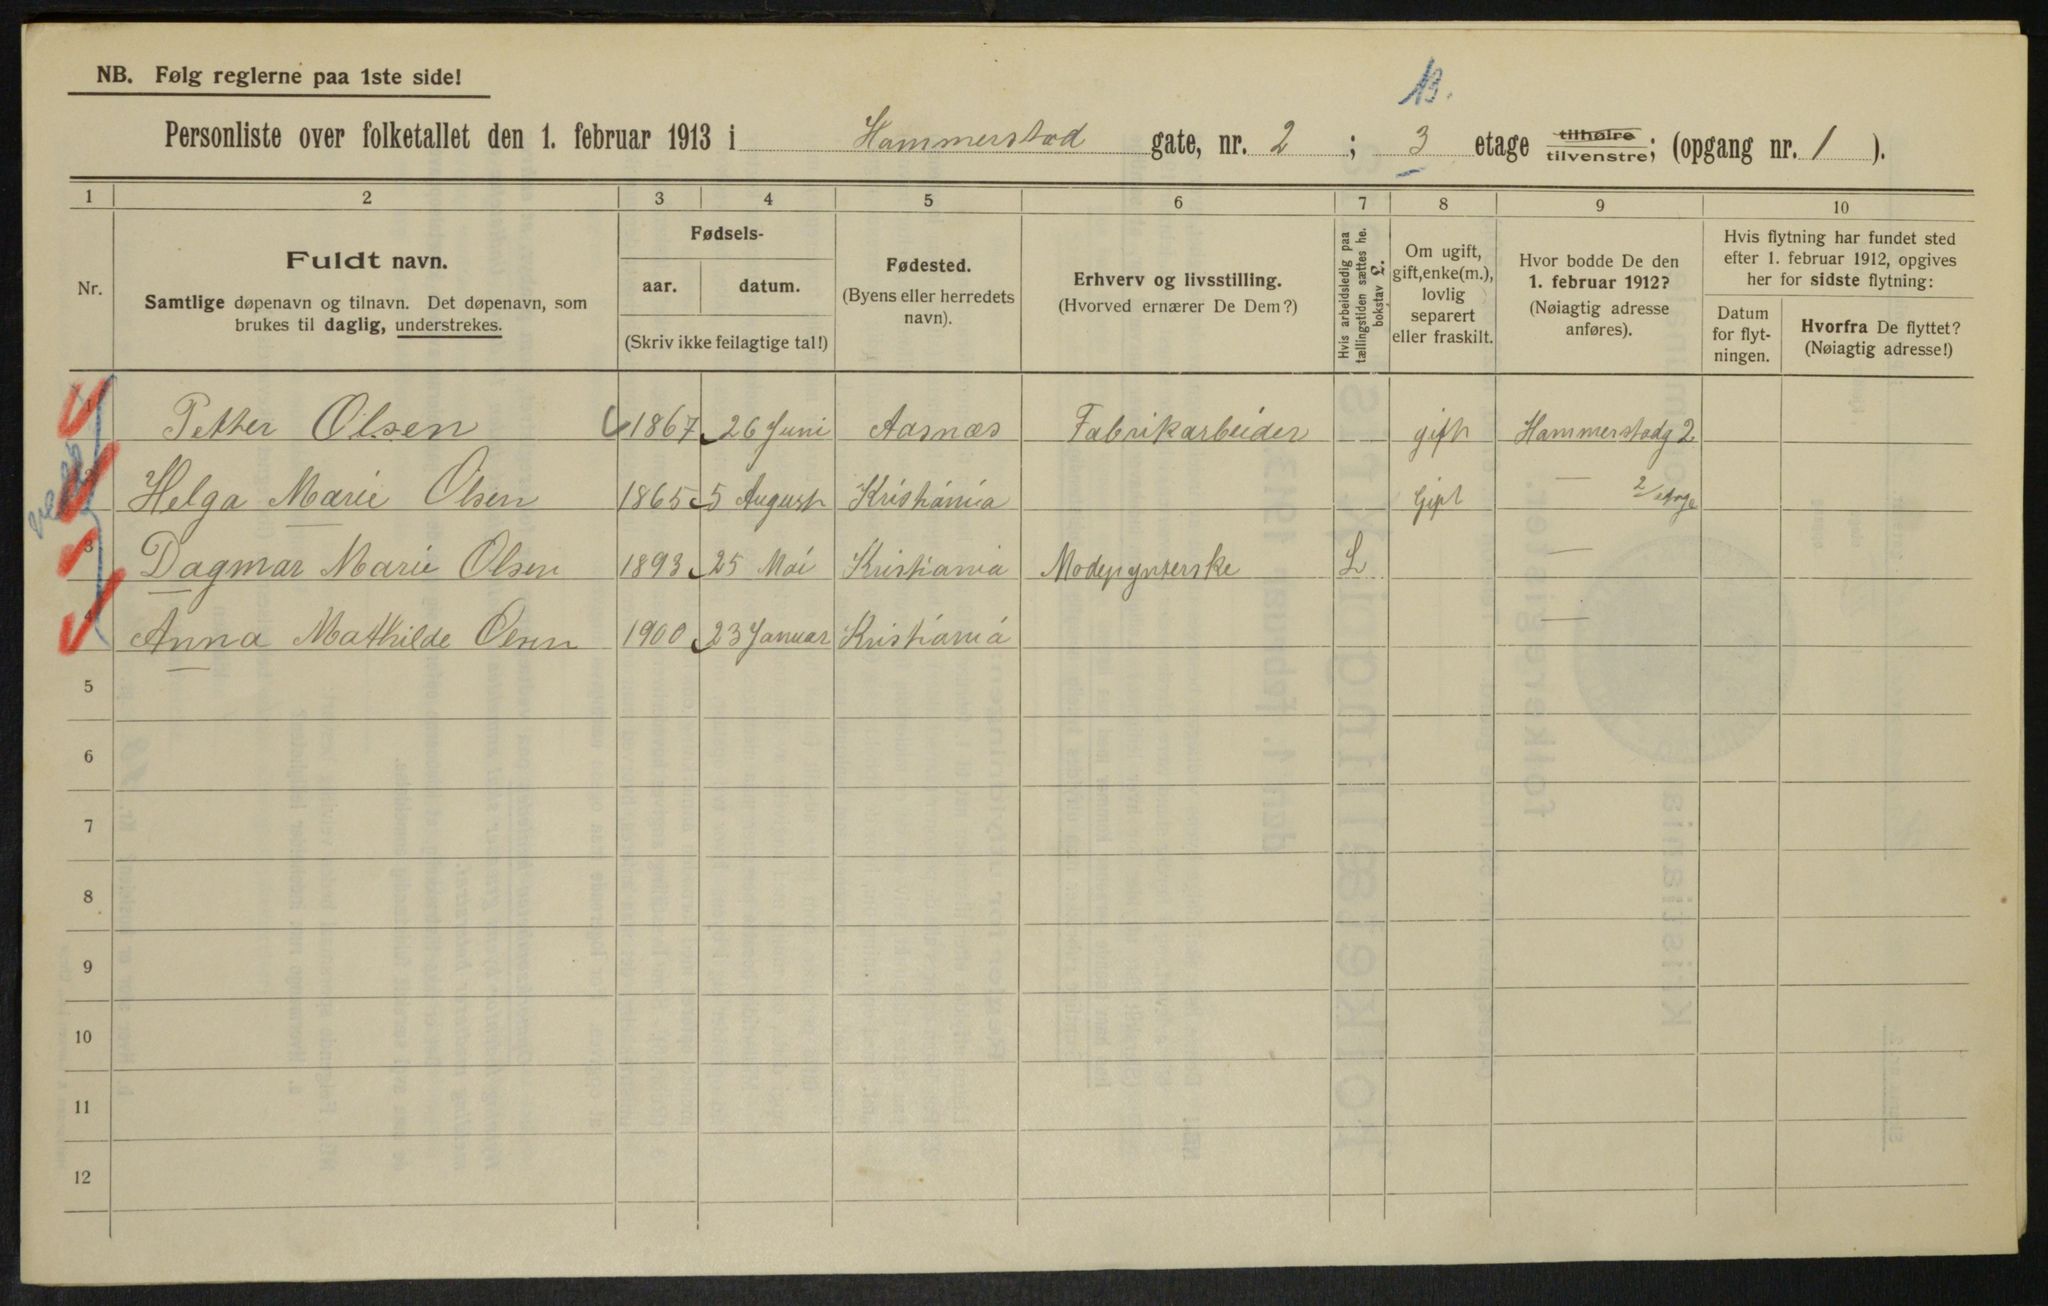 NB. Følg reglerne paa 1ste side!
13.
Personliste over folketallet den 1. februar 1913 i Hammerstad gate, nr. 2 ; 3 etage tilhøire tilvenstre; (opgang nr. 1 ).
1 2 3 4 5 6 7 8 9 10
Nr.
Fuldt navn.
Samtlige døpenavn og tilnavn. Det døpenavn, som
brukes til daglig, understrekes.
Fødsels-
aar. datum.
(Skriv ikke feilagtige tal!)
Fødested.
(Byens eller herredets
navn).
Erhverv og livsstilling.
(Hvorved ernærer De Dem?)
Hvis arbeidsledig paa
tællingstiden sættes he.
bokstav L.
Om ugift,
gift, enke(m.),
lovlig
separert
eller fraskilt.
Hvor bodde De den
1. februar 1912?
(Nøiagtig adresse
anføres).
Hvis flytning har fundet sted
efter 1. februar 1912, opgives
her for sidste flytning:
Datum
for flyt-
ningen.
Hvorfra De flyttet?
(Nøiagtig adresse!)
1 Petter Olsen 1867 26 Juni Aasnæs Fabrikarbeider gift Hammerstadg 2
2 Helga Marie Olsen 1865 5 August Kristiania Gift — 2 etage
3 Dagmar Marie Olsen 1893 25 Mai Kristiania Modepynterske L —
4 Anna Mathilde Olsen 1900 23 Januar Kristiania —
5
6
7
8
9
10
11
12